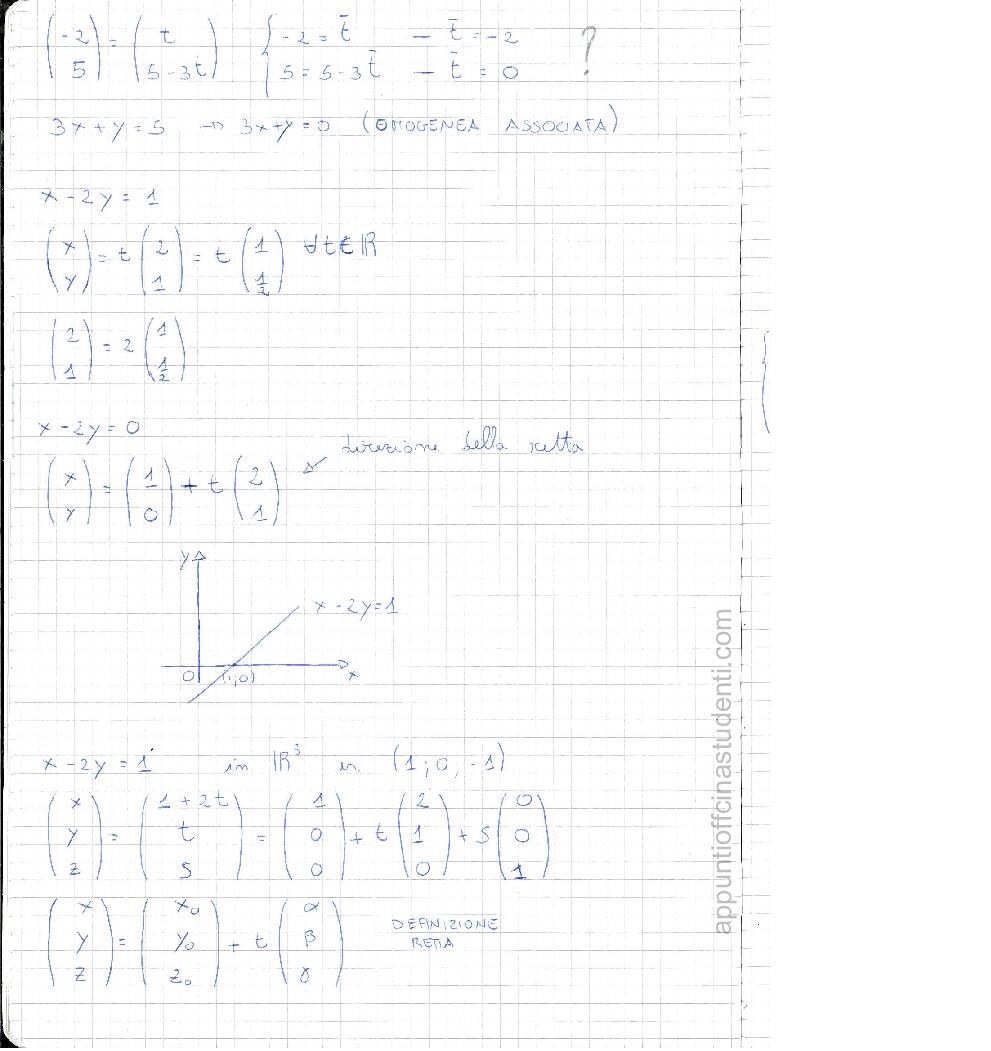 (-2 5) = (t 5-3t) { -2 = t̄ — t̄ = -2 ?
5 = 5-3t̄ — t̄ = 0
3x+y=5 → 3x+y=0 (OMOGENEA ASSOCIATA)
x-2y=1
(x y) = t (2 1) = t (1 1/2) ∀t∈ℝ
(2 1) = 2 (1 1/2)
x-2y=0
direzione della retta
(x y) = (1 0) + t (2 1)
y
x-2y=1
O (1;0) x
x-2y=1 in ℝ³ (1;0,-1)
(x y z) = (1+2t t s) = (1 0 0) + t (2 1 0) + s (0 0 1)
(x y z) = (x₀ y₀ z₀) + t (α β γ) DEFINIZIONE
RETTA
appuntioffcinastudenti.com